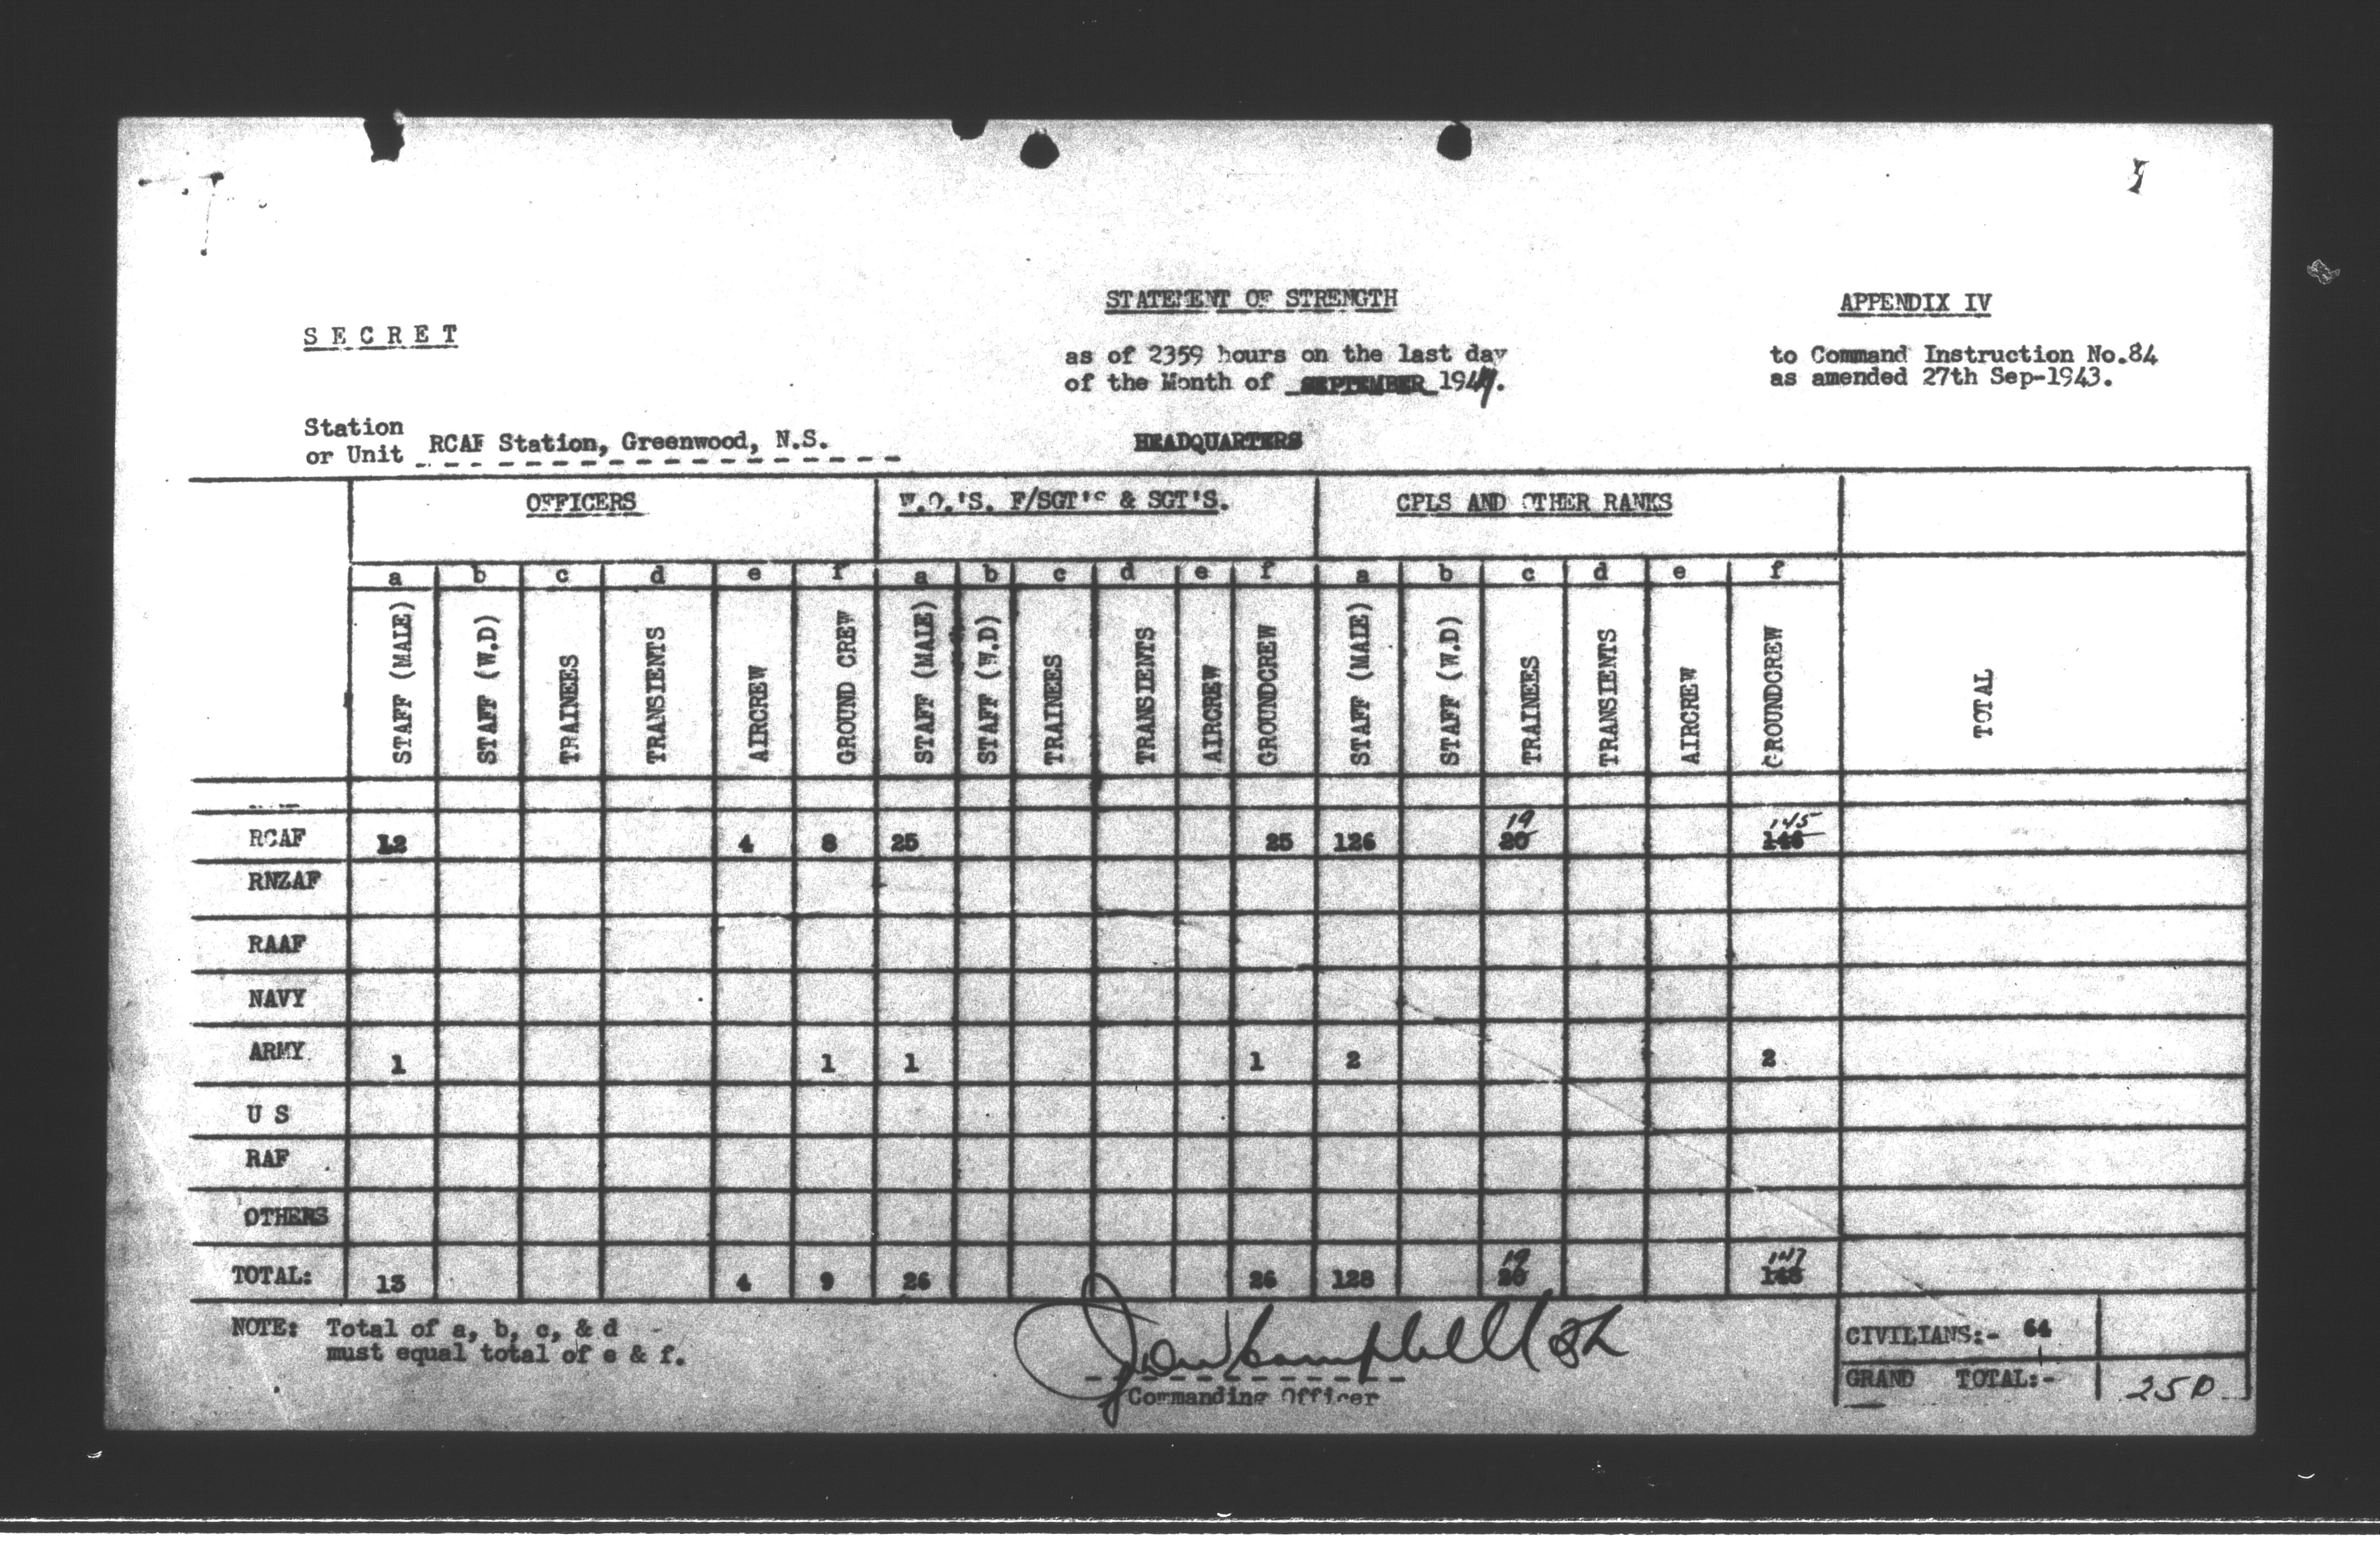 STATEMENT OF STRENGTH
APPENDIX IV
S E C R E T
as of 2359 hours on the last day
of the Month of SEPTEMBER 1944.
to Command Instruction No.84
as amended 27th Sep-1943.
Station
or Unit RCAF Station, Greenwood, N.S.
HEADQUARTERS
OFFICERS W.O.'S. F/SGT'S & SGT'S. CPLS AND OTHER RANKS
a b c d e f a b c d e f a b c d e f
STAFF (MALE) STAFF (W.D) TRAINEES TRANSIENTS AIRCREW GROUND CREW STAFF (MALE) STAFF (W.D) TRAINEES TRANSIENTS AIRCREW GROUNDCREW STAFF (MALE) STAFF (W.D) TRAINEES TRANSIENTS AIRCREW GROUNDCREW TOTAL
19 145
RCAF 12 4 8 25 25 126 20 146
RNZAF
RAAF
NAVY
ARMY 1 1 1 1 2 2
U S
RAF
OTHERS
19 147
TOTAL: 13 4 9 26 26 128 20 148
NOTE: Total of a, b, c, & d -
must equal total of e & f.
CIVILIANS:- 64
Commanding Officer
GRAND TOTAL:- 250